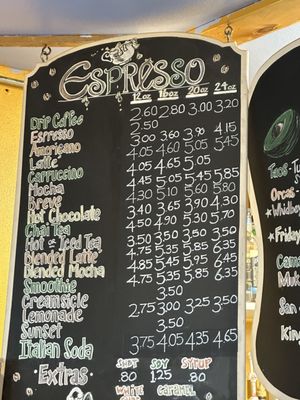 Espresso
12 oz 16 oz 20 oz 24 oz
Drip Coffee 2.60 2.80 3.00 3.20
Espresso 2.50
Americano 3.00 3.60 3.90 4.15
Latte 4.05 4.60 5.05 5.45
Cappuccino 4.05 4.65 5.05
Mocha 4.45 5.05 5.45 5.85
Breve 4.30 5.10 5.60 5.80
Hot Chocolate 3.40 3.65 3.90 4.30
Chai Tea 4.50 4.90 5.30 5.70
Hot or Iced Tea 3.50 3.50 3.50 3.50
Blended Latte 4.75 5.35 5.85 6.35
Blended Mocha 4.85 5.45 5.95 6.45
Smoothie 4.75 5.35 5.85 6.35
Creamsicle 3.50
Lemonade 2.75 3.00 3.25 3.50
Sunset 3.50
Italian Soda 3.75 4.05 4.35 4.65
Extras
SHOT SOY SYRUP
.80 1.25 .80
WHITE CARAMEL
Taos
Orcas
Friday
San